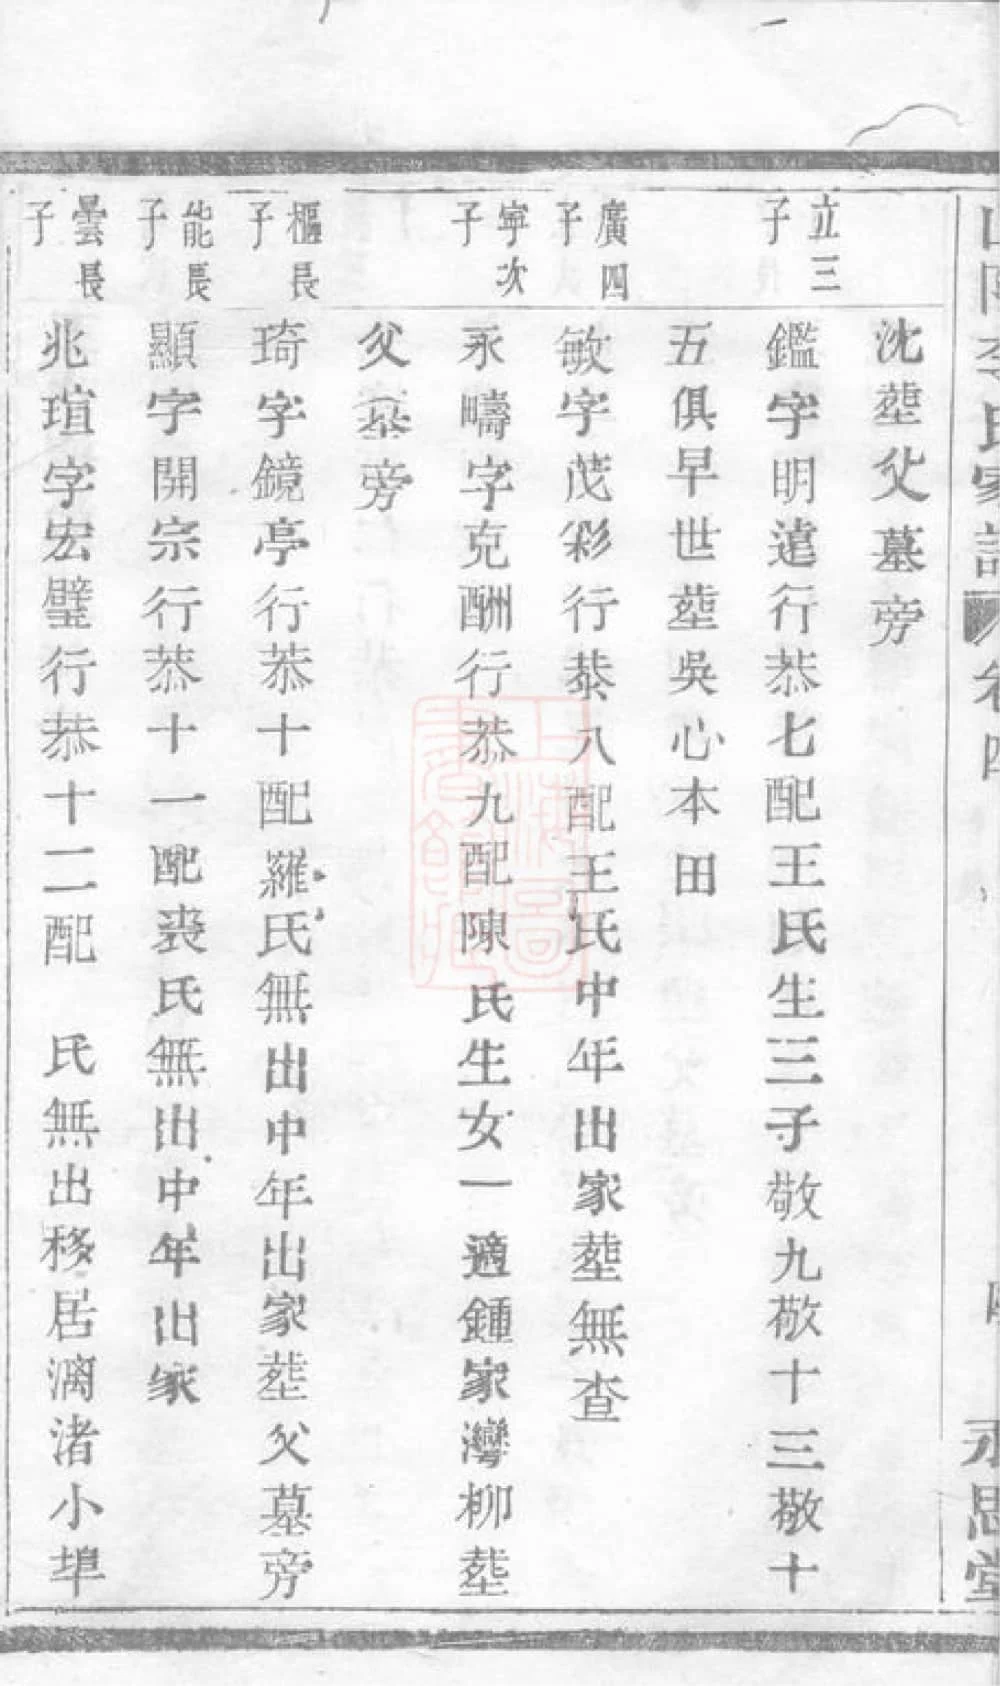 李氏家譜 卷四 永思堂
沈塟父墓旁
立三子
鑑字明遠行恭七配王氏生三子敬九敬十三敬十
五俱早世塟吳心本田
廣四子
敏字茂彩行恭八配王氏中年出家塟無查
寧次子
永疇字克酬行恭九配陳氏生女一適鍾家灣柳塟
父墓旁
樞長子
琦字鏡亭行恭十配羅氏無出中年出家塟父墓旁
能長子
顯字開宗行恭十一配裘氏無出中年出家
曇長子
兆瑄字宏璧行恭十二配　氏無出移居漓渚小埠